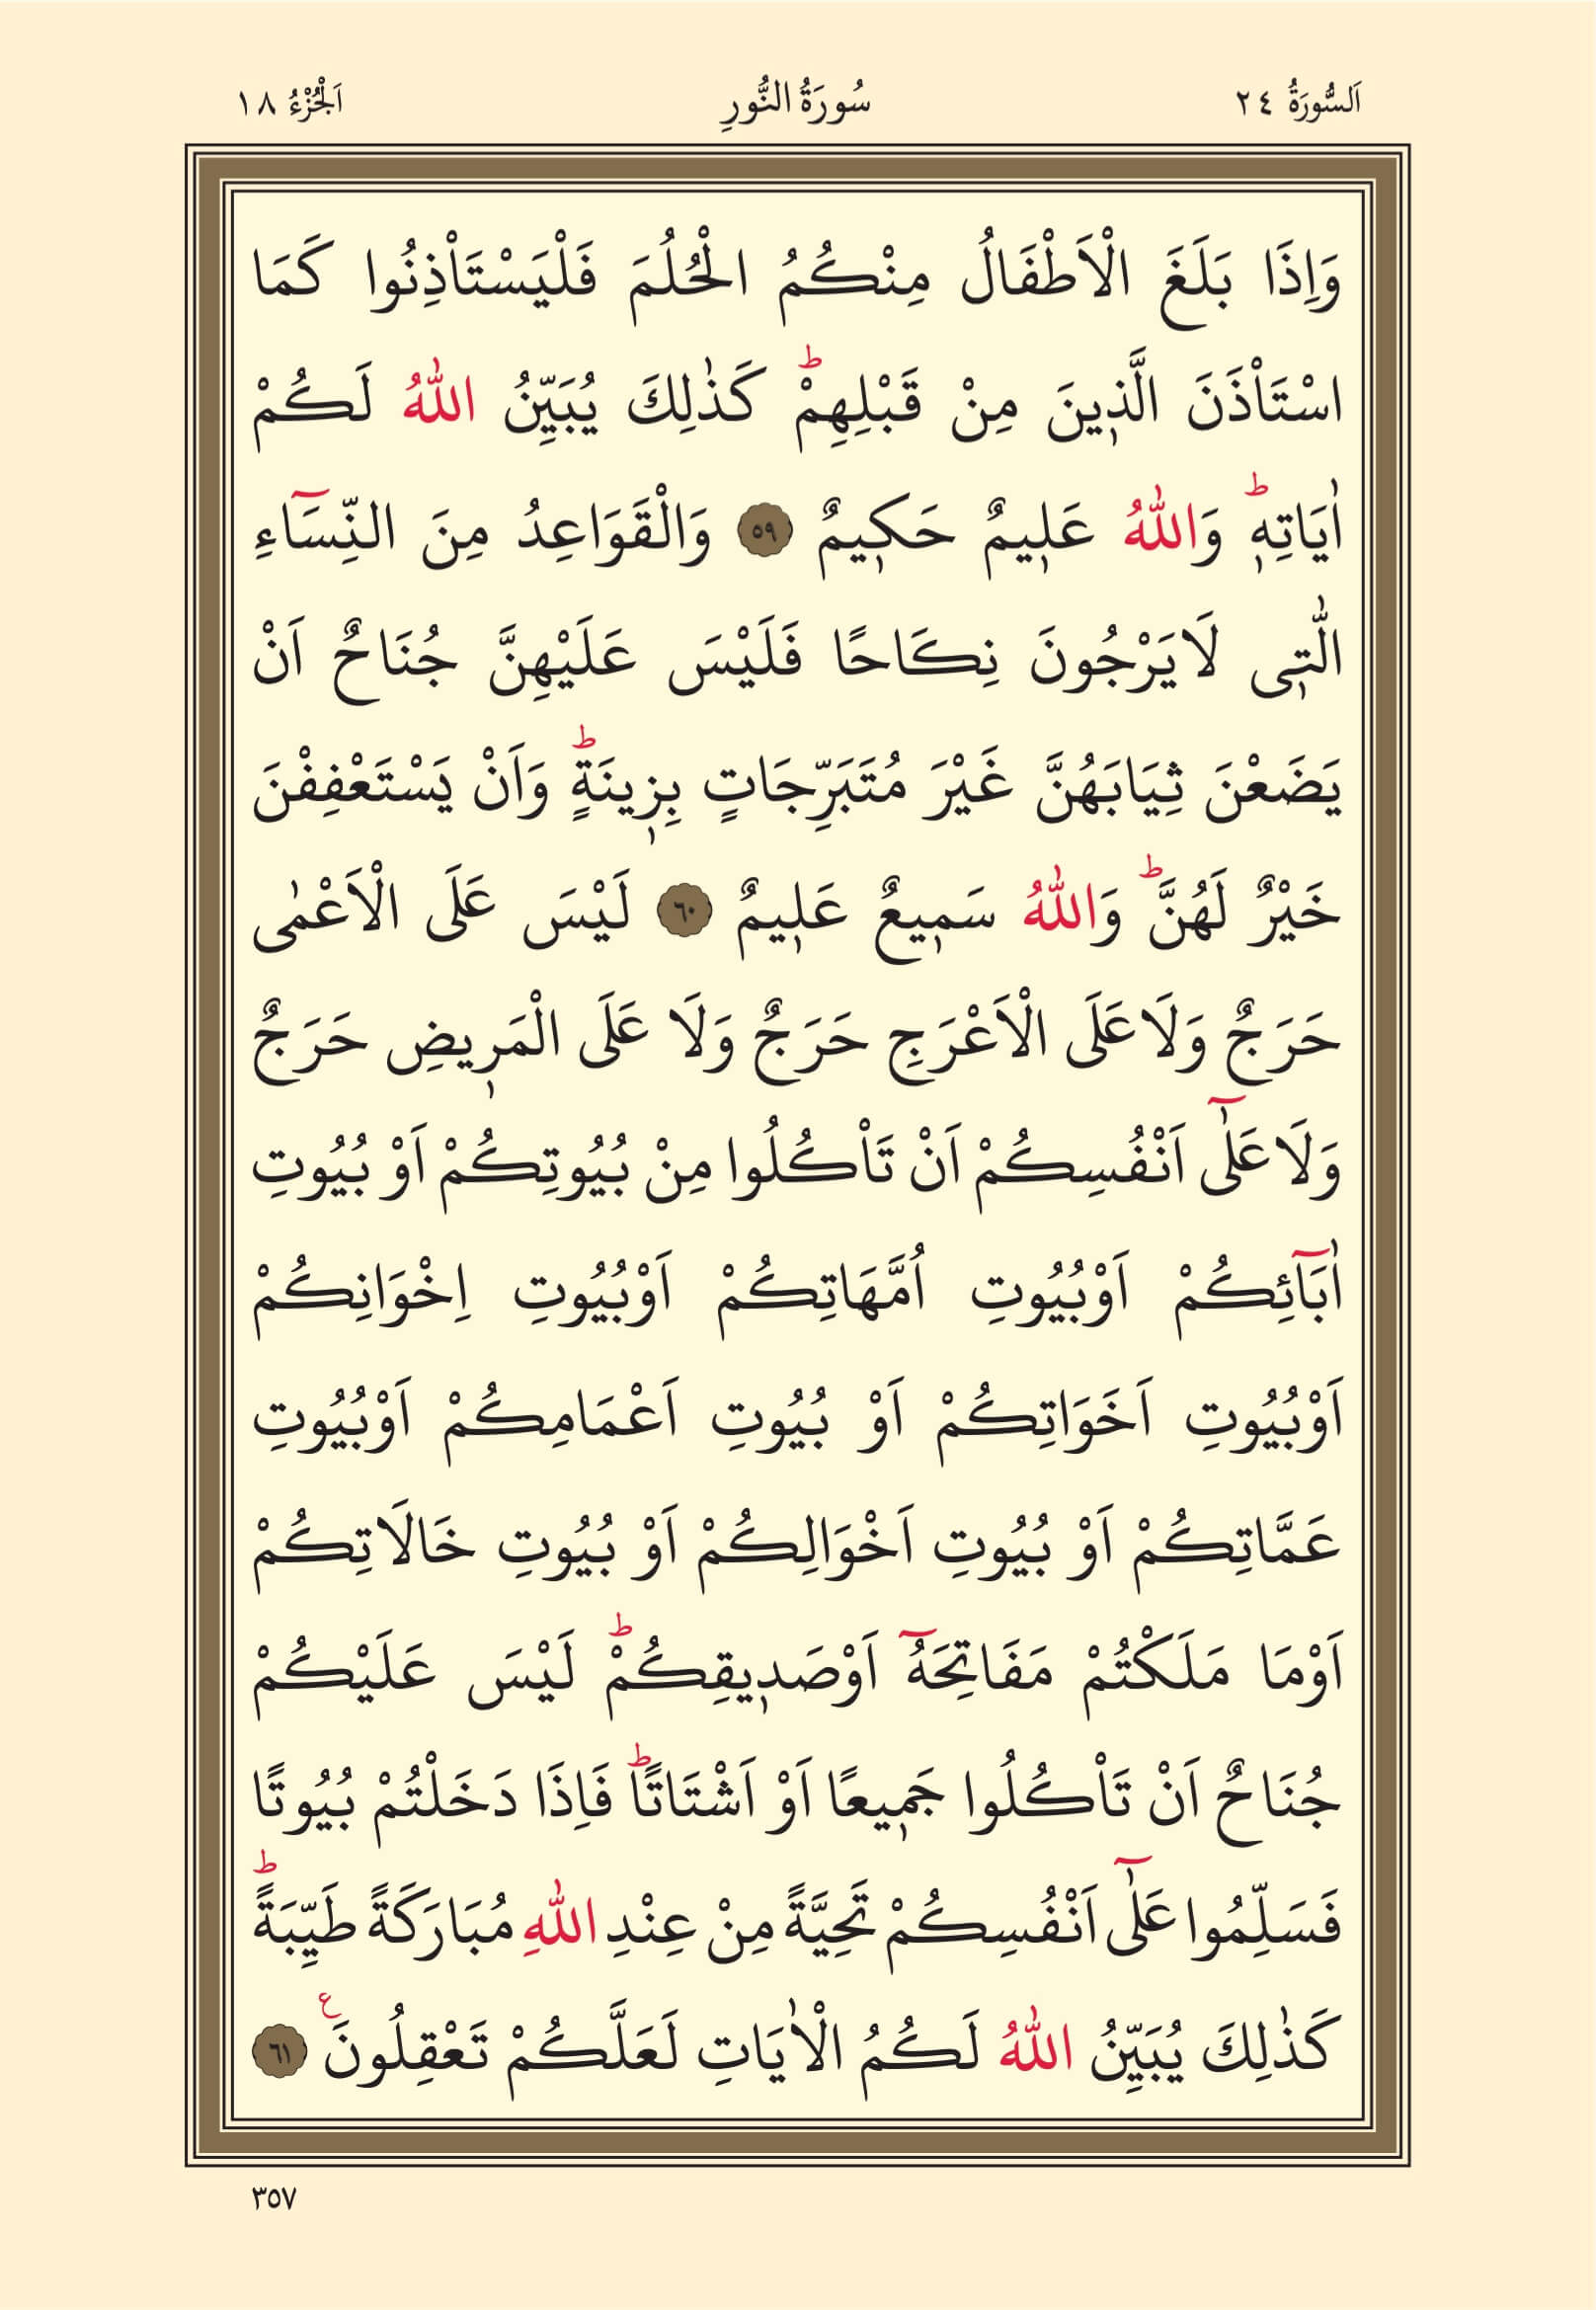 اَلسُّورَةُ ٢٤ سُورَةُ النُّورِ اَلْجُزْءُ ١٨
وَاِذَا بَلَغَ الْاَطْفَالُ مِنْكُمُ الْحُلُمَ فَلْيَسْتَاْذِنُوا كَمَا
اسْتَاْذَنَ الَّذ۪ينَ مِنْ قَبْلِهِمْۜ كَذٰلِكَ يُبَيِّنُ اللّٰهُ لَكُمْ
اٰيَاتِه۪ۜ وَاللّٰهُ عَل۪يمٌ حَك۪يمٌ ﴿٥٩﴾ وَالْقَوَاعِدُ مِنَ النِّسَٓاءِ
الّٰت۪ى لَا يَرْجُونَ نِكَاحًا فَلَيْسَ عَلَيْهِنَّ جُنَاحٌ اَنْ
يَضَعْنَ ثِيَابَهُنَّ غَيْرَ مُتَبَرِّجَاتٍ بِز۪ينَةٍۜ وَاَنْ يَسْتَعْفِفْنَ
خَيْرٌ لَهُنَّۜ وَاللّٰهُ سَم۪يعٌ عَل۪يمٌ ﴿٦٠﴾ لَيْسَ عَلَى الْاَعْمٰى
حَرَجٌ وَلَا عَلَى الْاَعْرَجِ حَرَجٌ وَلَا عَلَى الْمَر۪يضِ حَرَجٌ
وَلَا عَلٰٓى اَنْفُسِكُمْ اَنْ تَاْكُلُوا مِنْ بُيُوتِكُمْ اَوْ بُيُوتِ
اٰبَٓائِكُمْ اَوْ بُيُوتِ اُمَّهَاتِكُمْ اَوْ بُيُوتِ اِخْوَانِكُمْ
اَوْ بُيُوتِ اَخَوَاتِكُمْ اَوْ بُيُوتِ اَعْمَامِكُمْ اَوْ بُيُوتِ
عَمَّاتِكُمْ اَوْ بُيُوتِ اَخْوَالِكُمْ اَوْ بُيُوتِ خَالَاتِكُمْ
اَوْ مَا مَلَكْتُمْ مَفَاتِحَهُٓ اَوْ صَد۪يقِكُمْۜ لَيْسَ عَلَيْكُمْ
جُنَاحٌ اَنْ تَاْكُلُوا جَم۪يعًا اَوْ اَشْتَاتًاۜ فَاِذَا دَخَلْتُمْ بُيُوتًا
فَسَلِّمُوا عَلٰٓى اَنْفُسِكُمْ تَحِيَّةً مِنْ عِنْدِ اللّٰهِ مُبَارَكَةً طَيِّبَةًۜ
كَذٰلِكَ يُبَيِّنُ اللّٰهُ لَكُمُ الْاٰيَاتِ لَعَلَّكُمْ تَعْقِلُونَ ع ﴿٦١﴾
٣٥٧